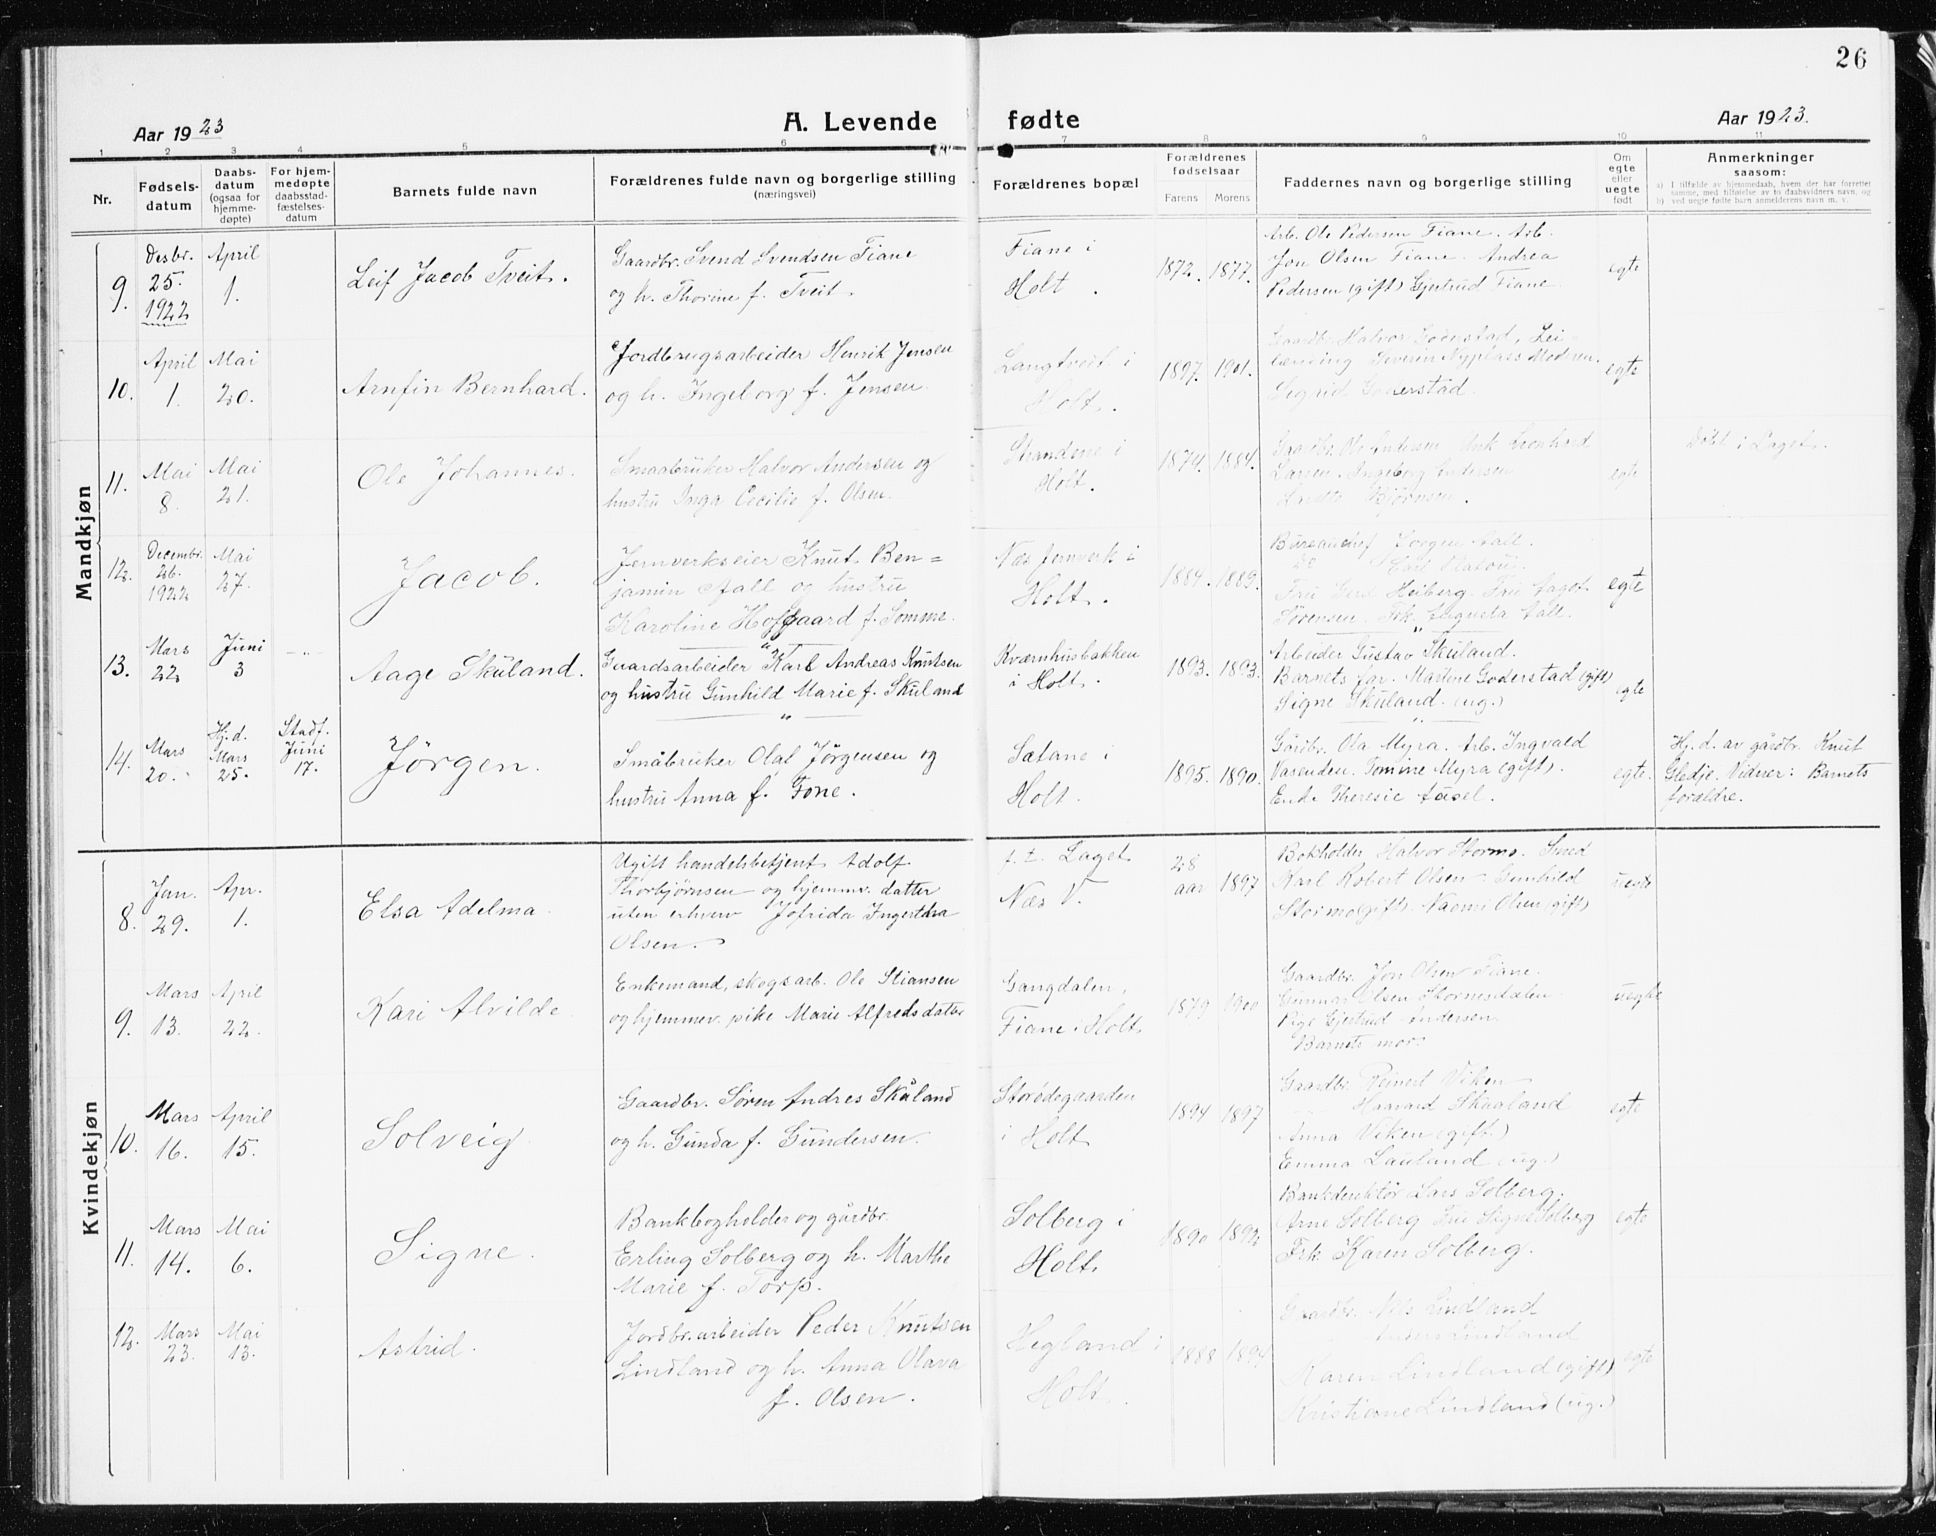 26
Aar 1923
A. Levende fødte
Aar 1923.
1 2 3 4 5 6 7 8 9 10 11
Nr.
Fødsels-
datum
Daabs-
datum
(ogsaa for
hjemme-
døpte)
For hjem-
medøpte
daabsstad-
fæstelses-
datum
Barnets fulde navn
Forældrenes fulde navn og borgerlige stilling
(næringsvei)
Forældrenes bopæl
Forældrenes
fødselsaar
Farens Morens
Faddernes navn og borgerlige stilling
Om
egte
eller
uegte
født
Anmerkninger
saasom:
a) I tilfælde av hjemmedaab, hvem der har forrettet
samme, med tilføielse av to daabsvidners navn, og
b) ved uegte fødte barn anmelderens navn m. v.
Mandkjøn
9.
Desbr.
25.
1922
April
1.
Leif Jacob Tveit.
Gaardbr. Svend Svendsen Fiane
og h. Thorine f. Tveit.
Fiane i
Holt.
1872. 1877.
Arb. Ole Pedersen Fiane. Arb.
Jon Olsen Fiane. Andrea
Pedersen (gift) Gjertrud Fiane
egte
10.
April
1.
Mai
20.
Arnfin Bernhard.
Jordbrugsarbeider Henrik Jensen
og h. Ingeborg f. Jensen.
Langtvedt i
Holt.
1897. 1901.
Gaardbr. Halvor Goderstad, Lei-
lænding Severin Nyplads Modren.
Sigrid Goderstad.
egte
11.
Mai
8.
Mai
21.
Ole Johannes.
Smaabruker Halvor Andersen og
hustru Inga Cecilie f. Olsen.
Strandene i
Holt.
1874. 1884.
Gaardbr. Ole Andersen Leonhard
Larsen. Ingeborg Andersen
Bjørnsen.
egte
Døbt i Laget.
12.
Decembr.
26.
1922
Mai
27.
Jacob.
Jernverkseier Knut Ben=
jamin Aall og hustru
Karoline Hofgaard f. Somme.
Næs Jernverk i
Holt.
1884. 1889.
Bureauchef Jørgen Aall.
Do Carl Platou.
Fru Gerd Heiberg. Fru Lagot
Sørensen. Frk. Augusta Aall.
egte
13.
Mars
22
Juni
3
-„-
Aage Skuland.
Gaardsarbeider Karl Andreas Knutsen
og hustru Gunhild Marie f. Skuland
Kværnhusbakken
i Holt.
1893. 1893.
Arbeider Gustav Skuland.
Barnets far. Martine Goderstad (gift)
Signe Skuland. (ug.)
egte
14.
Mars
20.
Hj. d.
Mars
25.
Stadf.
Juni
17.
Jørgen.
Småbruker Olaf Jørgensen og
hustru Anna f. Fone.
Sætane i
Holt.
1895. 1890.
Gårdbr. Ola Myra. Arb. Ingvald
Vasenden. Tomine Myra (gift).
Enke Theresie Ausel.
egte.
Hj. d. av gårdbr. Knut
Gledje. Vidner: Barnets
forældre.
Kvindekjøn
8.
Jan.
29.
Apr.
1.
Elsa Adelma.
Ugift handelsbetjent Adolf
Thorbjørnsen og hjemmv. datter
uten erhverv Jofrida Ingertha
Olsen.
f. t. Laget
Næs V.
28
aar 1897
Bokholder Halvor Stormo. Smed
Karl Robert Olsen. Gunhild
Stormo (gift). Naomi Olsen (gift)
uegte
9.
Mars
13.
April
22.
Kari Alvilde
Enkemand, skogsarb. Ole Stiansen
og hjemmev. pike Marie Alfredsdatter
Gangdalen,
Fiane i Holt
1879 1900
Gaardbr. Jon Olsen Fiane.
Gunnar Olsen Stornesdalen
Pige Gjertrud Andersen.
Barnets mor.
uegte
10.
Mars
16.
April
15.
Solveig.
Gaardbr. Søren Andres Skåland
og h. Gunda f. Gundersen.
Storødegaarden
i Holt
1894 1897
Gaardbr. Reinert Viken
Haavard Skaaland
Anna Viken (gift)
Emma Lauland (ug.)
egte
11.
Mars
14.
Mai
6.
Signe.
Bankbogholder og gårdbr.
Erling Solberg og h. Marthe
Marie f. Torp.
Solberg i
Holt
1890 1892
Bankdirektør Lars Solberg.
Arne Solberg Fru Signe Solberg
Frk Karen Solberg.
egte
12.
Mars
23.
Mai
13.
Astrid.
Jordbr.arbeider Peder Knutsen
Lindland og h. Anna Olava
f. Olsen.
Hegland i
Holt.
1888 1894
Gaardbr. Nils Lindland
Anders Lindland
Karen Lindland (gift)
Kristiane Lindland (ug.)
egte